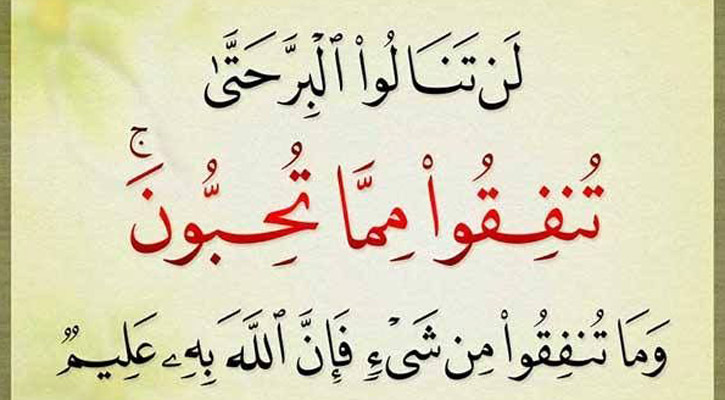 لَن تَنَالُوا۟ ٱلْبِرَّ حَتَّىٰ
تُنفِقُوا۟ مِمَّا تُحِبُّونَ ۚ
وَمَا تُنفِقُوا۟ مِن شَىْءٍ فَإِنَّ ٱللَّهَ بِهِۦ عَلِيمٌ